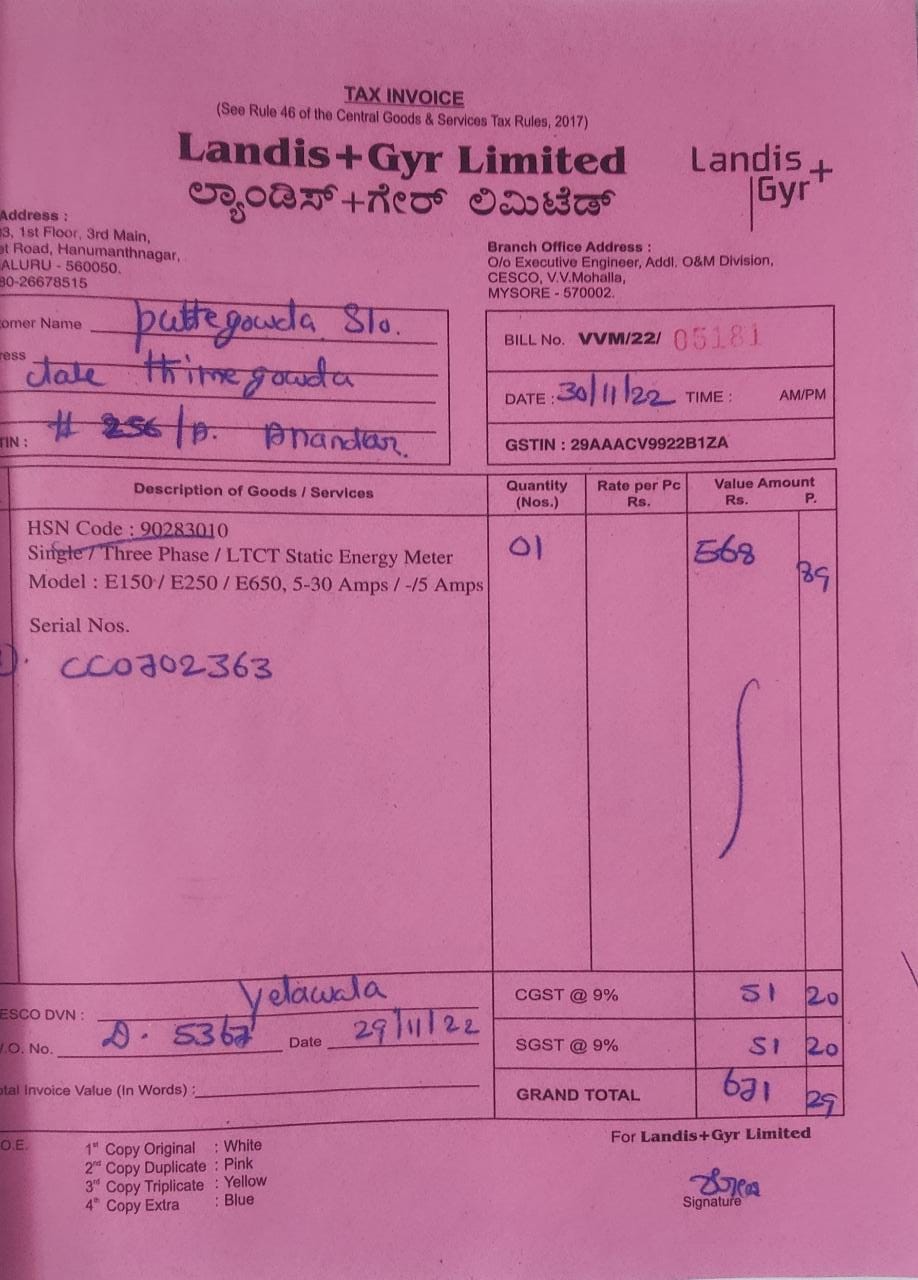 TAX INVOICE
(See Rule 46 of the Central Goods & Services Tax Rules, 2017)
Landis+Gyr Limited
Landis+
Gyr
ಲ್ಯಾಂಡಿಸ್+ಗೇರ್ ಲಿಮಿಟೆಡ್
Address :
3, 1st Floor, 3rd Main,
et Road, Hanumanthnagar,
ALURU - 560050.
80-26678515
Branch Office Address :
O/o Executive Engineer, Addl. O&M Division,
CESCO, V.V.Mohalla,
MYSORE - 570002.
omer Name puttegowda S/o.
ress thimegowda
TIN : # 256/A. Anandur.
BILL No. VVM/22/ 05181
DATE : 30/11/22 TIME : AM/PM
GSTIN : 29AAACV9922B1ZA
Description of Goods / Services Quantity (Nos.) Rate per Pc Rs. Value Amount Rs. P.
HSN Code : 90283010
Single / Three Phase / LTCT Static Energy Meter 01 568 89
Model : E150 / E250 / E650, 5-30 Amps / -/5 Amps
Serial Nos.
CC0702363
ESCO DVN : Yelawala
.O. No. D. 5367 Date 29/11/22
otal Invoice Value (In Words) :
CGST @ 9% 51 20
SGST @ 9% 51 20
GRAND TOTAL 671 29
O.E.
1st Copy Original : White
2nd Copy Duplicate : Pink
3rd Copy Triplicate : Yellow
4th Copy Extra : Blue
For Landis+Gyr Limited
Signature